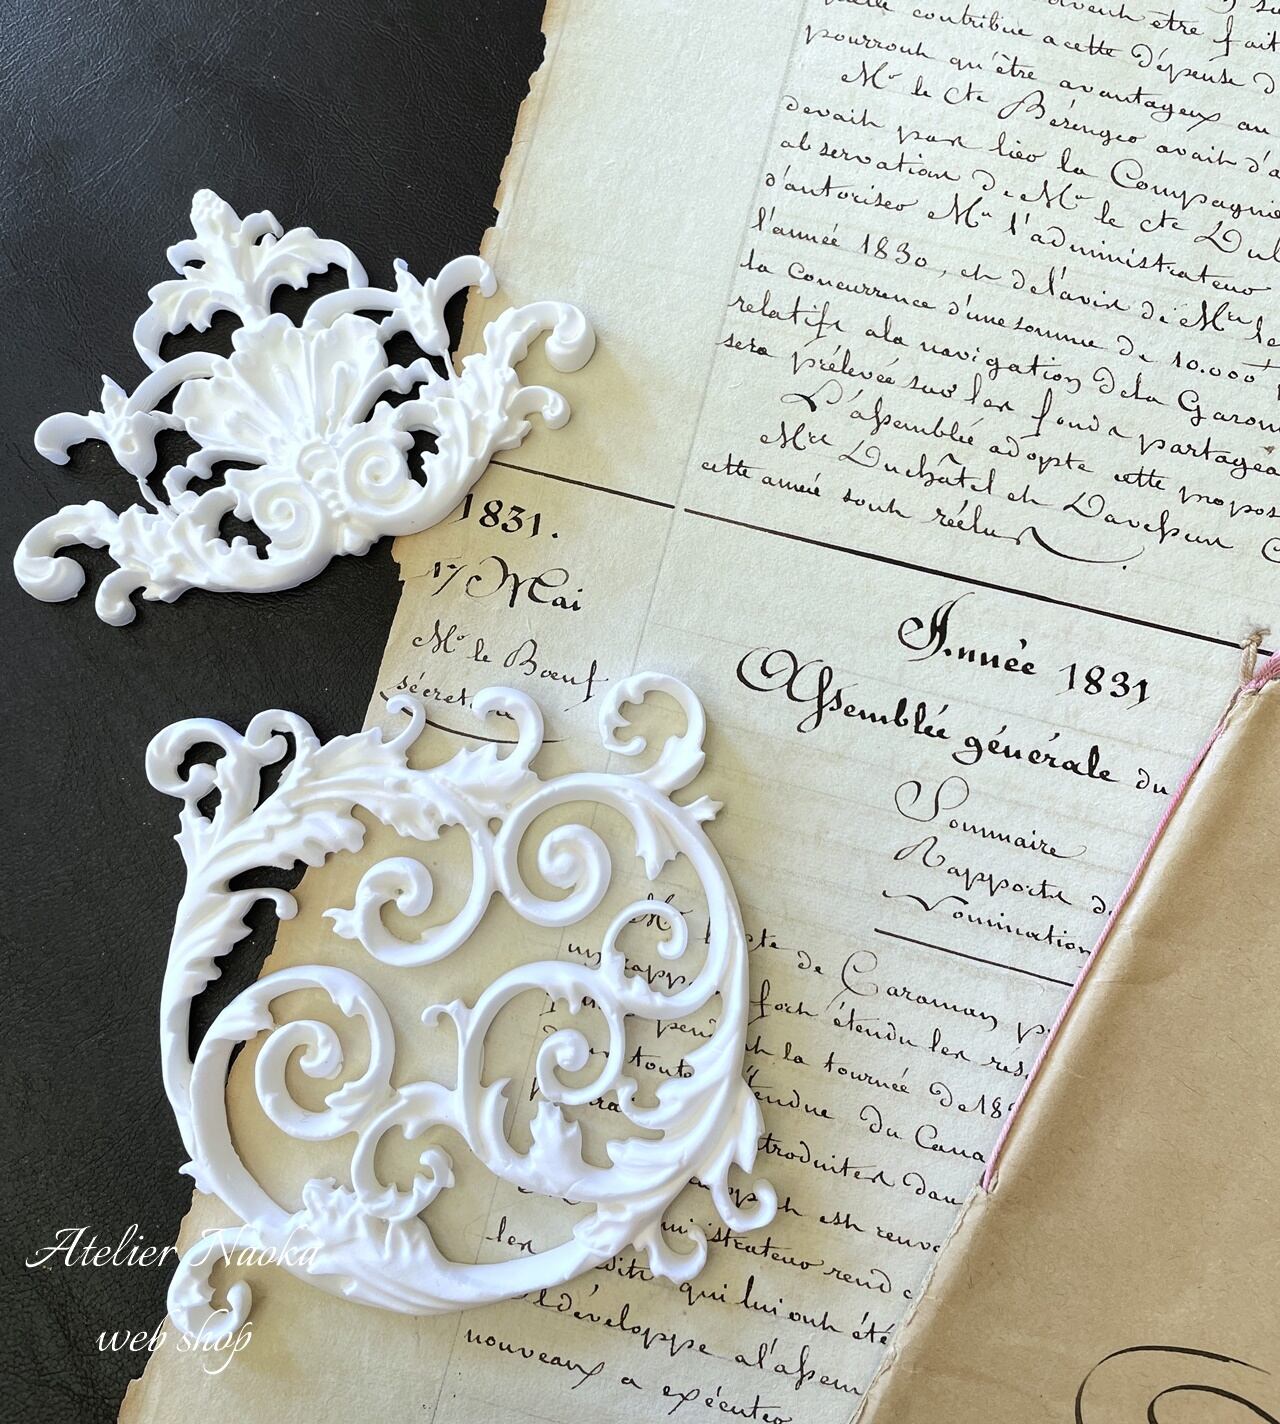 doivent être fait
quelle contribue a cette dépense d
pourront qu'être avantageux au
Mr le Cte Bérenger avait d'a
devait par lieu la Compagnie
observation de Mr le cte Dul
d'autoriser Mr l'administrateur
l'année 1830, et de l'avis de Mrs les
la concurrence d'une somme de 10.000 f
relatifs a la navigation de la Garonn
sera prélevée sur les fonds partagea
L'assemblée adopte cette propos
Mrs Duchâtel et Davessen
cette année sont réélus
1831.
17 Mai
Mr le Bœuf
secret
Année 1831
Assemblée générale du
Sommaire
Rapports d
Nomination
M. de Caraman p
un rapp fort étendu les res
pend la tournée de 18
toute étendue du Cana
troduites dans
est renv
les ministrateur rend c
qui lui ont été
développe a l'assem
nouveaux a exécuter
Atelier Naoka
web shop